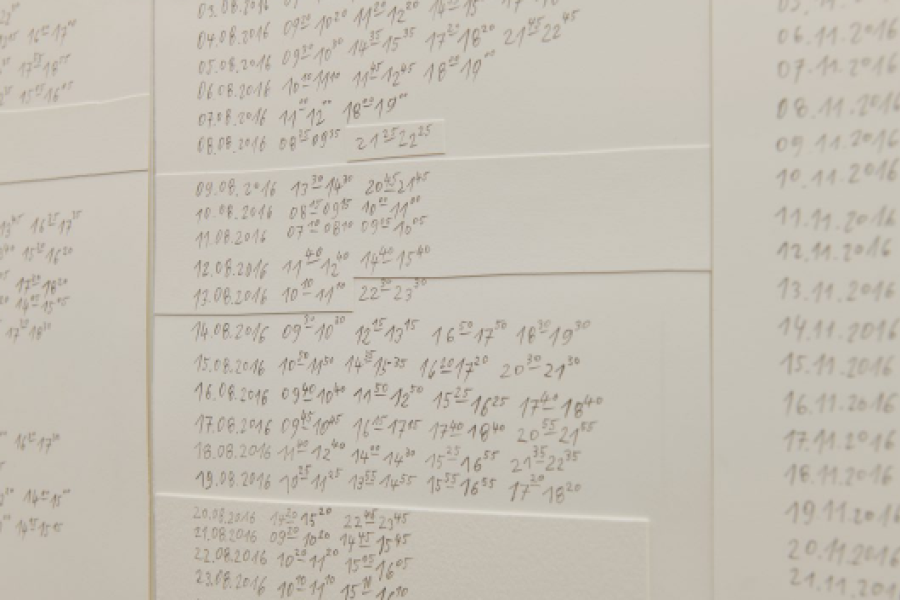 16⁰⁰17⁰⁰
17⁵⁵18⁵⁵
15⁰⁵16⁰⁵
16³⁵17³⁵
15²⁰16²⁰
17²⁰18²⁰
14⁰⁵15⁰⁵
17³⁰18³⁰
16³⁰17³⁰
14⁰⁰15⁰⁰
14¹⁵15¹⁵
03.08.2016
04.08.2016 09²⁰10²⁰ 11²⁰12²⁰
05.08.2016 09³⁰10³⁰ 14³⁵15³⁵ 17²⁰18²⁰ 21⁴⁵22⁴⁵
06.08.2016 10¹⁰11¹⁰ 11⁴⁵12⁴⁵ 18⁰⁰19⁰⁰
07.08.2016 11⁰⁰12⁰⁰ 18⁰⁰19⁰⁰
08.08.2016 08³⁵09³⁵ 21²⁵22²⁵
09.08.2016 13³⁰14³⁰ 20⁴⁵21⁴⁵
10.08.2016 08¹⁵09¹⁵ 10⁰⁰11⁰⁰
11.08.2016 07¹⁰08¹⁰ 09⁰⁵10⁰⁵
12.08.2016 11⁴⁰12⁴⁰ 14⁴⁰15⁴⁰
13.08.2016 10¹⁰11¹⁰ 22³⁰23³⁰
14.08.2016 09³⁰10³⁰ 12¹⁵13¹⁵ 16⁵⁰17⁵⁰ 18³⁰19³⁰
15.08.2016 10⁵⁰11⁵⁰ 14³⁵15³⁵ 16²⁰17²⁰ 20³⁰21³⁰
16.08.2016 09⁴⁰10⁴⁰ 11⁵⁰12⁵⁰ 15²⁵16²⁵ 17⁴⁰18⁴⁰
17.08.2016 09⁴⁵10⁴⁵ 16¹⁵17¹⁵ 17⁴⁰18⁴⁰ 20⁵⁵21⁵⁵
18.08.2016 11⁴⁰12⁴⁰ 14⁰⁰14³⁰ 15²⁵16⁵⁵ 21³⁵22³⁵
19.08.2016 10²⁵11²⁵ 13⁵⁵14⁵⁵ 15⁵⁵16⁵⁵ 17²⁰18²⁰
20.08.2016 14²⁰15²⁰ 22⁴⁵23⁴⁵
21.08.2016 09²⁰10²⁰ 14⁴⁵15⁴⁵
22.08.2016 10²⁰11²⁰ 15⁰⁵16⁰⁵
23.08.2016 10¹⁰11¹⁰ 15¹⁰16¹⁰
06.11.2016
07.11.2016
08.11.2016
09.11.2016
10.11.2016
11.11.2016
12.11.2016
13.11.2016
14.11.2016
15.11.2016
16.11.2016
17.11.2016
18.11.2016
19.11.2016
20.11.2016
21.11.2016